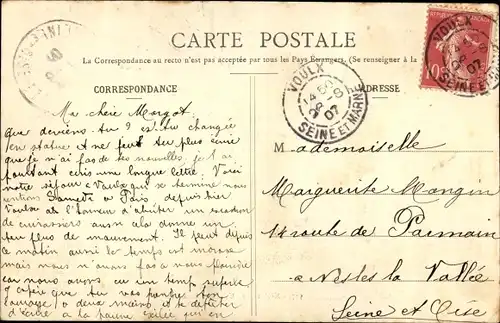 CARTE POSTALE
La Correspondance au recto n'est pas acceptée par tous les Pays Étrangers. (Se renseigner à la
CORRESPONDANCE
ADRESSE
VOULX
07
SEINE ET MARNE
Ma chère Margot
Que deviens-tu ? es-tu changée
en statue
que je n'ai pas de tes nouvelles, je t'ai
pourtant écris une longue lettre. Voici
notre séjour à Voulx qui se termine nous
rentrons Samedi à Paris, depuis hier
Voulx a l'honneur d'abriter un escadron
de cuirassiers aussi cela donne un
peu plus de mouvement. Il pleut depuis
ce matin aussi le temps est morose
mais nous n'avons pas à nous plaindre
car nous avons eu un temps superbe
Mademoiselle
Marguerite Mangin
14 route de Parmain
à Nesles la Vallée
Seine et Oise